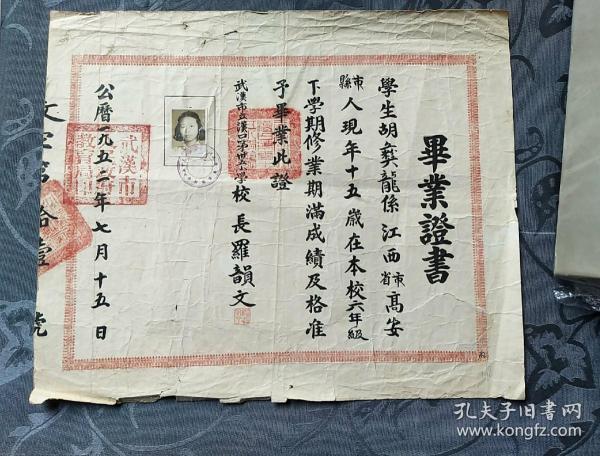 畢業證書
學生胡龍係江西省市高安
縣市人現年十五歲在本校六年級
下學期修業期滿成績及格准
予畢業此證
武漢市立漢口第四小學校長羅韻文
公曆一九五二年七月十五日
武漢市
教育局印
文字第拾壹號
孔夫子旧书网
www.kongfz.com